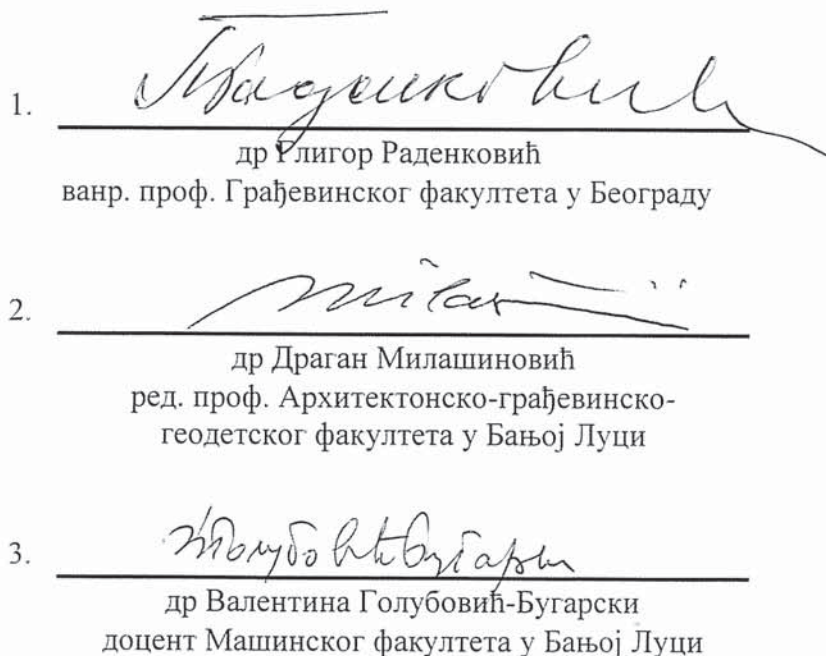 1.
др Глигор Раденковић
ванр. проф. Грађевинског факултета у Београду
2.
др Драган Милашиновић
ред. проф. Архитектонско-грађевинско-
геодетског факултета у Бањој Луци
3.
др Валентина Голубовић-Бугарски
доцент Машинског факултета у Бањој Луци